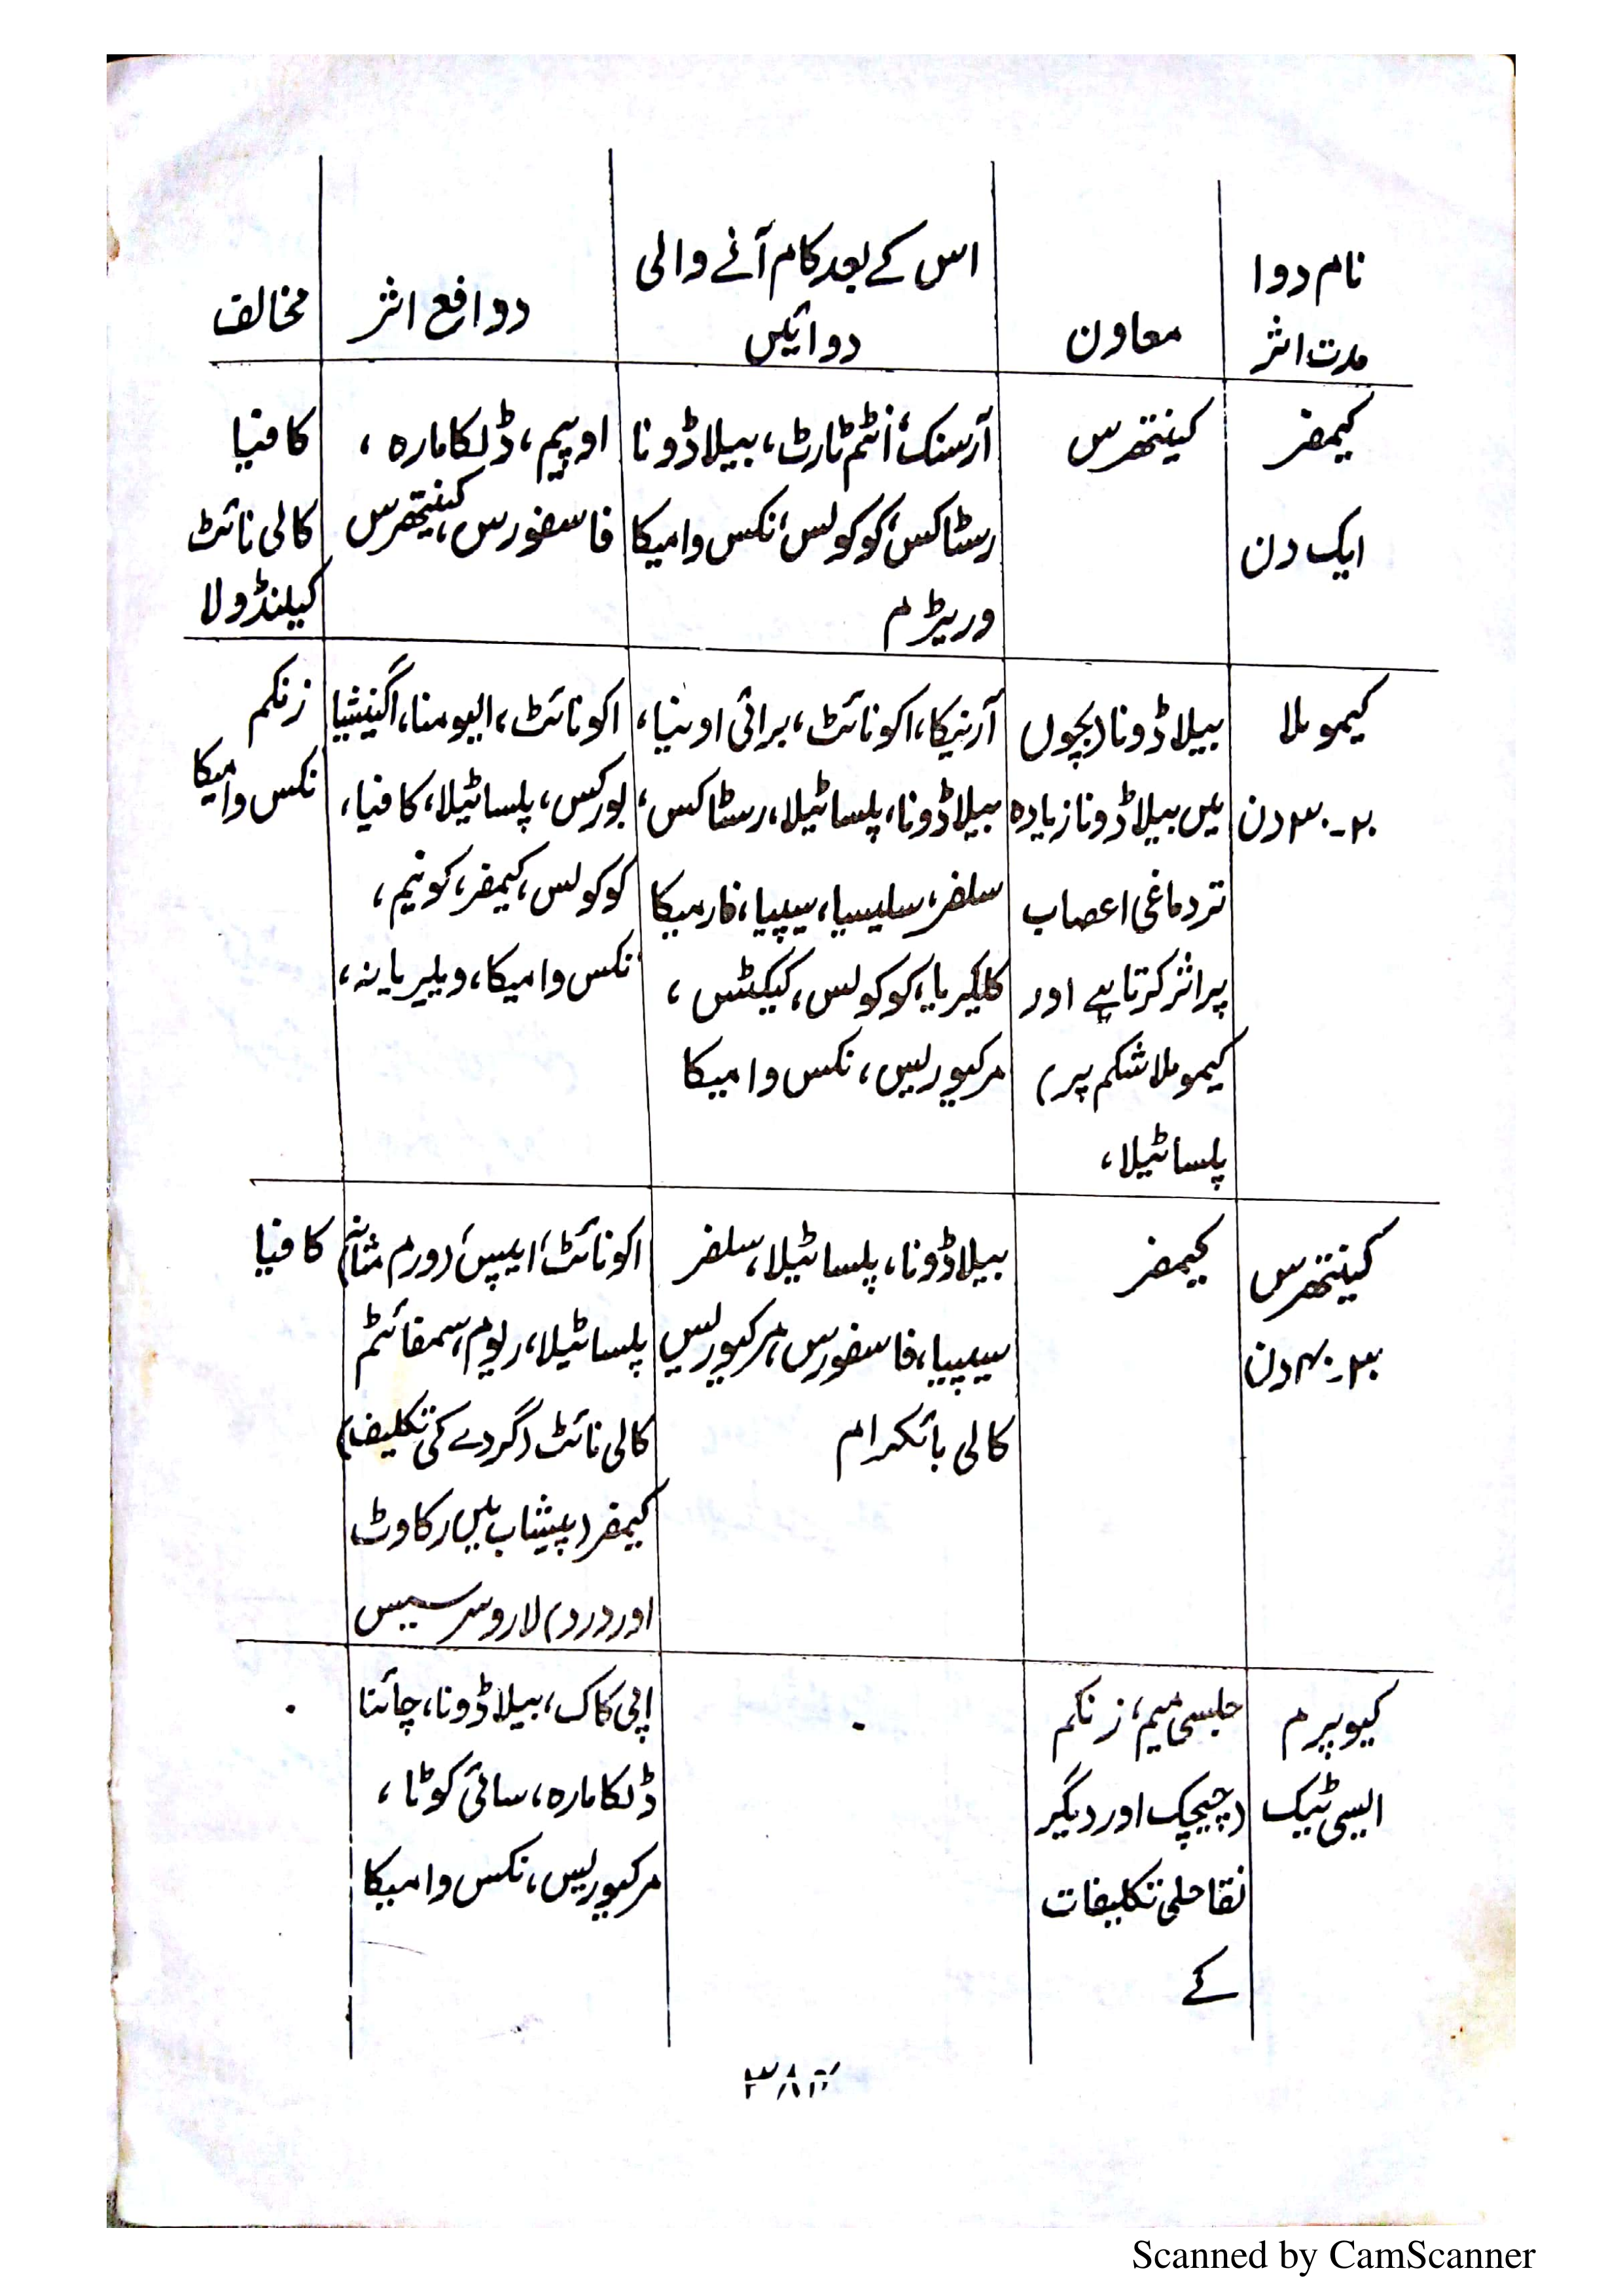 نام دوا
مدت اثر
معاون
اس کے بعد کام آنے والی
دوائیں
دوافع اثر
مخالف
کیمفر
ایک دن
کینتھرس
آرسنک، انٹم ٹارٹ، بیلاڈونا
رسٹاکس، کوکولس، نکس وامیکا
وریٹرم
اوپیم، ڈلکامارہ،
فاسفورس، کینتھرس
کافیا
کالی نائٹ
کیلنڈولا
کیمومِلا
۲۰-۳۰ دن
بیلاڈونا (بچوں
میں بیلاڈونا زیادہ
تر دماغی اعصاب
پر اثر کرتا ہے اور
کیموملا شکم پر)
پلساٹیلا،
آرنیکا، اکونائٹ، برائی اونیا،
بیلاڈونا، پلساٹیلا، رسٹاکس،
سلفر، سلیسیا، سیپیا، فارمیکا
کلکیریا، کوکولس، کیکٹس،
مرکیوریس، نکس وامیکا
اکونائٹ، الیومنا، اگنیشیا
بورکس، پلساٹیلا، کافیا،
کوکولس، کیمفر، کونیم،
نکس وامیکا، ویلیریانہ،
زنکم
نکس وامیکا
کینتھرس
۳۰-۴۰ دن
کیمفر
بیلاڈونا، پلساٹیلا، سلفر
سیپیا، فاسفورس، مرکیوریس
کالی بائکرام
اکونائٹ، ایپس، (ورم مثانہ)
پلساٹیلا، ریوم، سمفائٹم
کالی نائٹ (گردے کی تکلیف)
کیمفر (پیشاب میں رکاوٹ
اور درد) لاروسرسیس
کافیا
کیوپرم
ایسی ٹیک
جلسی میم، زنکم
(چیچک اور دیگر
نقاحلی تکلیفات
کے
.
اپی کاک، بیلاڈونا، چائنا
ڈلکامارہ، سائی کوٹا،
مرکیوریس، نکس وامیکا
.
Scanned by CamScanner